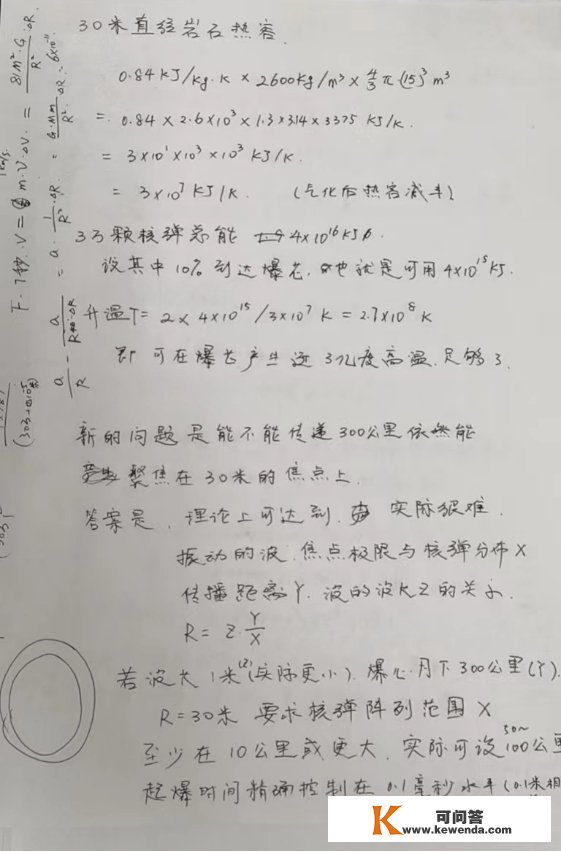 30米直径岩石热容.
0.84 KJ/kg.K × 2600kg/m³ × 4/3 π (15)³ m³
= 0.84 × 2.6×10³ × 1.3×3.14×3375 KJ/K.
= 3×10¹×10³×10³ KJ/K.
= 3×10⁷ KJ/K. (气化后热容减半)
3万颗核弹总能 4×10¹⁶KJ.
设其中10%到达爆芯, 也就是可用4×10¹⁵KJ.
升温T= 2×4×10¹⁵/3×10⁷ K = 2.7×10⁸ K
即可在爆芯产生近3亿度高温. 足够了.
新的问题是能不能传递300公里依然能
聚焦在30米的焦点上.
答案是, 理论上可达到, 实际很难.
振动的波, 焦点极限与核弹分布X
传播距离Y, 波的波长Z的关系.
R = Z·Y/X
若波长1米(Z)(实际更小). 爆心月下300公里(Y).
R=30米 要求核弹阵列范围X
至少在10公里或更大, 实际可设
50~
100公里
起爆时间精确控制在0.1毫秒水平(0.1米相
下.1秒. V=
m·V·ΔV. =
R²
·ΔR
= a·1/R²·ΔR
= G·Mm/R²·ΔR.
a/R
可问答
www.kewenda.com